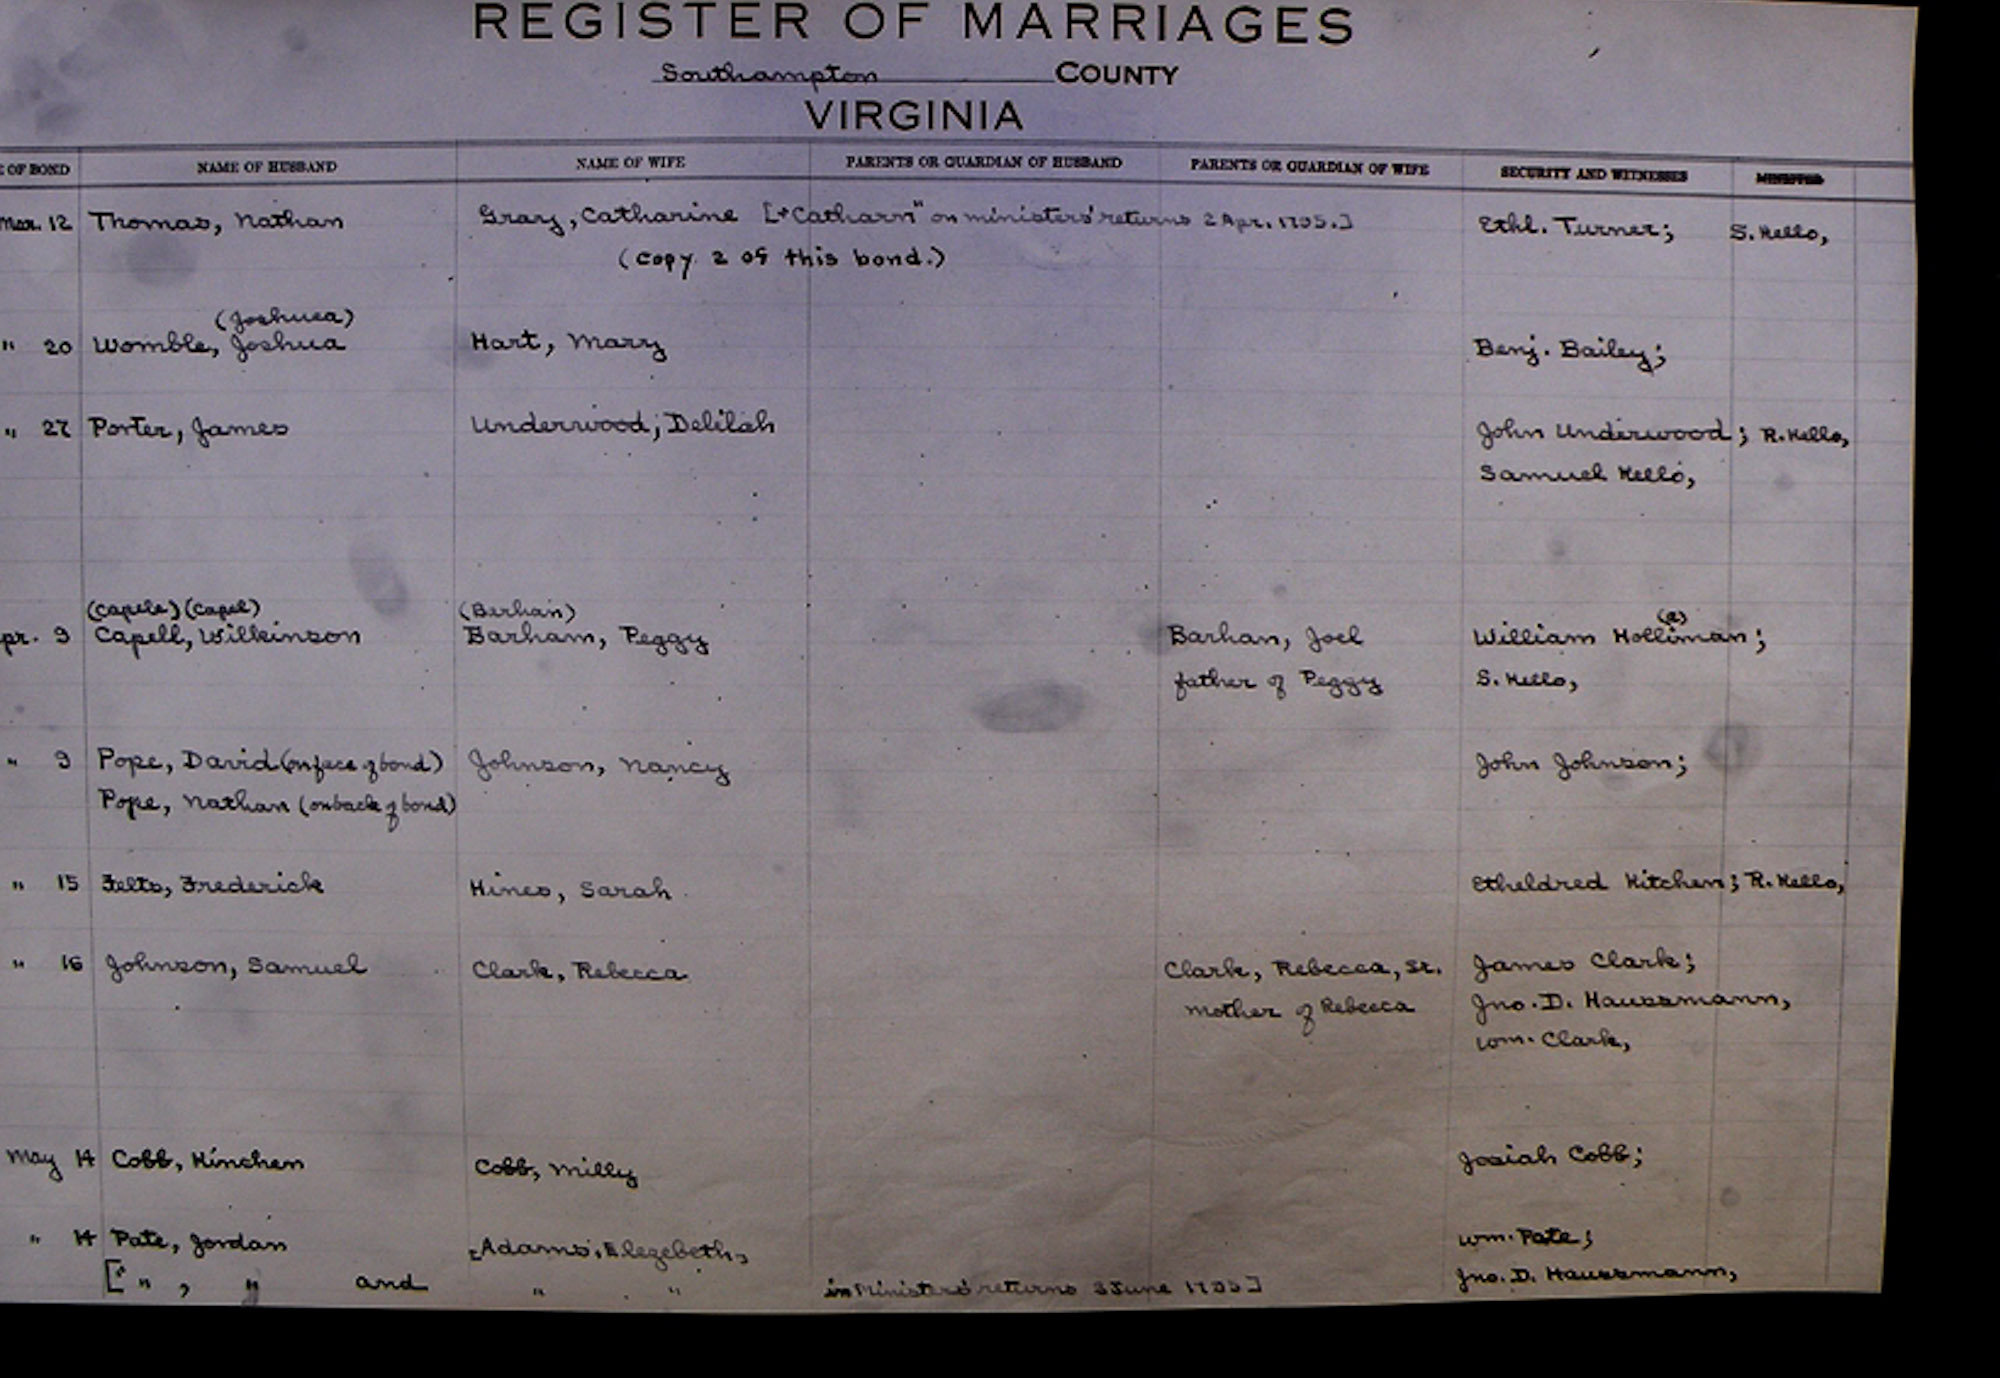 REGISTER OF MARRIAGES
Southampton COUNTY
VIRGINIA
OF BOND NAME OF HUSBAND NAME OF WIFE PARENTS OR GUARDIAN OF HUSBAND PARENTS OR GUARDIAN OF WIFE SECURITY AND WITNESSES MINISTER
Mar. 12 Thomas, Nathan Gray, Catharine [*"Catharn" on ministers' returns 2 Apr. 1795.] Ethl. Turner; S. Kello,
(copy 2 of this bond.)
(Joshuea)
" 20 Womble, Joshua Hart, Mary Benj. Bailey;
" 27 Porter, James Underwood, Delilah John Underwood; R. Kello,
Samuel Kello,
(Capele) (Capel) (Barhan) (a)
pr. 9 Capell, Wilkinson Barham, Peggy Barhan, Joel William Holliman;
father of Peggy S. Kello,
" 9 Pope, David (on face of bond) Johnson, Nancy John Johnson;
Pope, Nathan (on back of bond)
" 15 Felts, Frederick Hines, Sarah Etheldred Kitchen; R. Kello,
" 16 Johnson, Samuel Clark, Rebecca Clark, Rebecca, Sr. James Clark;
mother of Rebecca Jno. D. Haussmann,
Wm. Clark,
May 14 Cobb, Kinchen Cobb, Milly Josiah Cobb;
" 14 Pate, Jordan Adams, Elezebeth, Wm. Pate;
[" " , " and " " in Ministers' returns 3 June 1795] Jno. D. Haussmann,